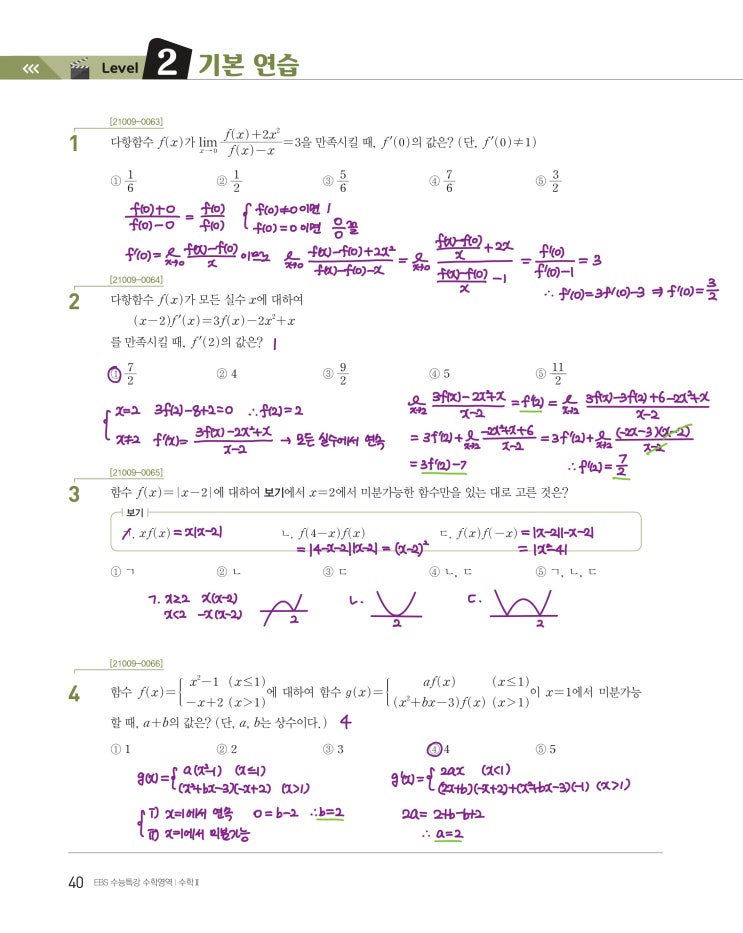 Level 2 기본 연습
[21009-0063]
1 다항함수 f(x)가 lim x→0 (f(x)+2x²)/(f(x)-x)=3을 만족시킬 때, f′(0)의 값은? (단, f′(0)≠1)
① 1/6 ② 1/2 ③ 5/6 ④ 7/6 ⑤ 3/2
(f(0)+0)/(f(0)-0) = f(0)/f(0) { f(0)≠0이면 1
f(0)=0이면 0/0꼴
f′(0)= ℓ x→0 (f(x)-f(0))/x 이므로 ℓ x→0 (f(x)-f(0)+2x²)/(f(x)-f(0)-x) = ℓ x→0 ((f(x)-f(0))/x +2x)/((f(x)-f(0))/x -1) = f′(0)/(f′(0)-1) = 3
∴ f′(0)=3f′(0)-3 ⇒ f′(0)=3/2
[21009-0064]
2 다항함수 f(x)가 모든 실수 x에 대하여
(x-2)f′(x)=3f(x)-2x²+x
를 만족시킬 때, f′(2)의 값은? 1
① 7/2 ② 4 ③ 9/2 ④ 5 ⑤ 11/2
{ x=2 3f(2)-8+2=0 ∴f(2)=2
x≠2 f′(x)= (3f(x)-2x²+x)/(x-2) → 모든 실수에서 연속
ℓ x→2 (3f(x)-2x²+x)/(x-2) = f′(2) = ℓ x→2 (3f(x)-3f(2)+6-2x²+x)/(x-2)
= 3f′(2)+ ℓ x→2 (-2x²+x+6)/(x-2) = 3f′(2)+ ℓ x→2 ((-2x-3)(x-2))/(x-2)
= 3f′(2)-7 ∴ f′(2)= 7/2
[21009-0065]
3 함수 f(x)=|x-2|에 대하여 보기에서 x=2에서 미분가능한 함수만을 있는 대로 고른 것은?
보기
ㄱ. xf(x) = x|x-2| ㄴ. f(4-x)f(x) ㄷ. f(x)f(-x) = |x-2||-x-2|
= |4-x-2||x-2| = (x-2)² = |x²-4|
① ㄱ ② ㄴ ③ ㄷ ④ ㄴ, ㄷ ⑤ ㄱ, ㄴ, ㄷ
ㄱ. x≥2 x(x-2) 2 ㄴ. 2 ㄷ. 2
x<2 -x(x-2)
[21009-0066]
4 함수 f(x)={ x²-1 (x≤1) -x+2 (x>1) 에 대하여 함수 g(x)={ af(x) (x≤1) (x²+bx-3)f(x) (x>1) 이 x=1에서 미분가능
할 때, a+b의 값은? (단, a, b는 상수이다.) 4
① 1 ② 2 ③ 3 ④ 4 ⑤ 5
g(x)={ a(x²-1) (x≤1) (x²+bx-3)(-x+2) (x>1)
g′(x)={ 2ax (x<1) (2x+b)(-x+2)+(x²+bx-3)(-1) (x>1)
{ i) x=1에서 연속 0=b-2 ∴b=2
ii) x=1에서 미분가능
2a= 2+b-b+2
∴ a=2
40 EBS 수능특강 수학영역 | 수학Ⅱ